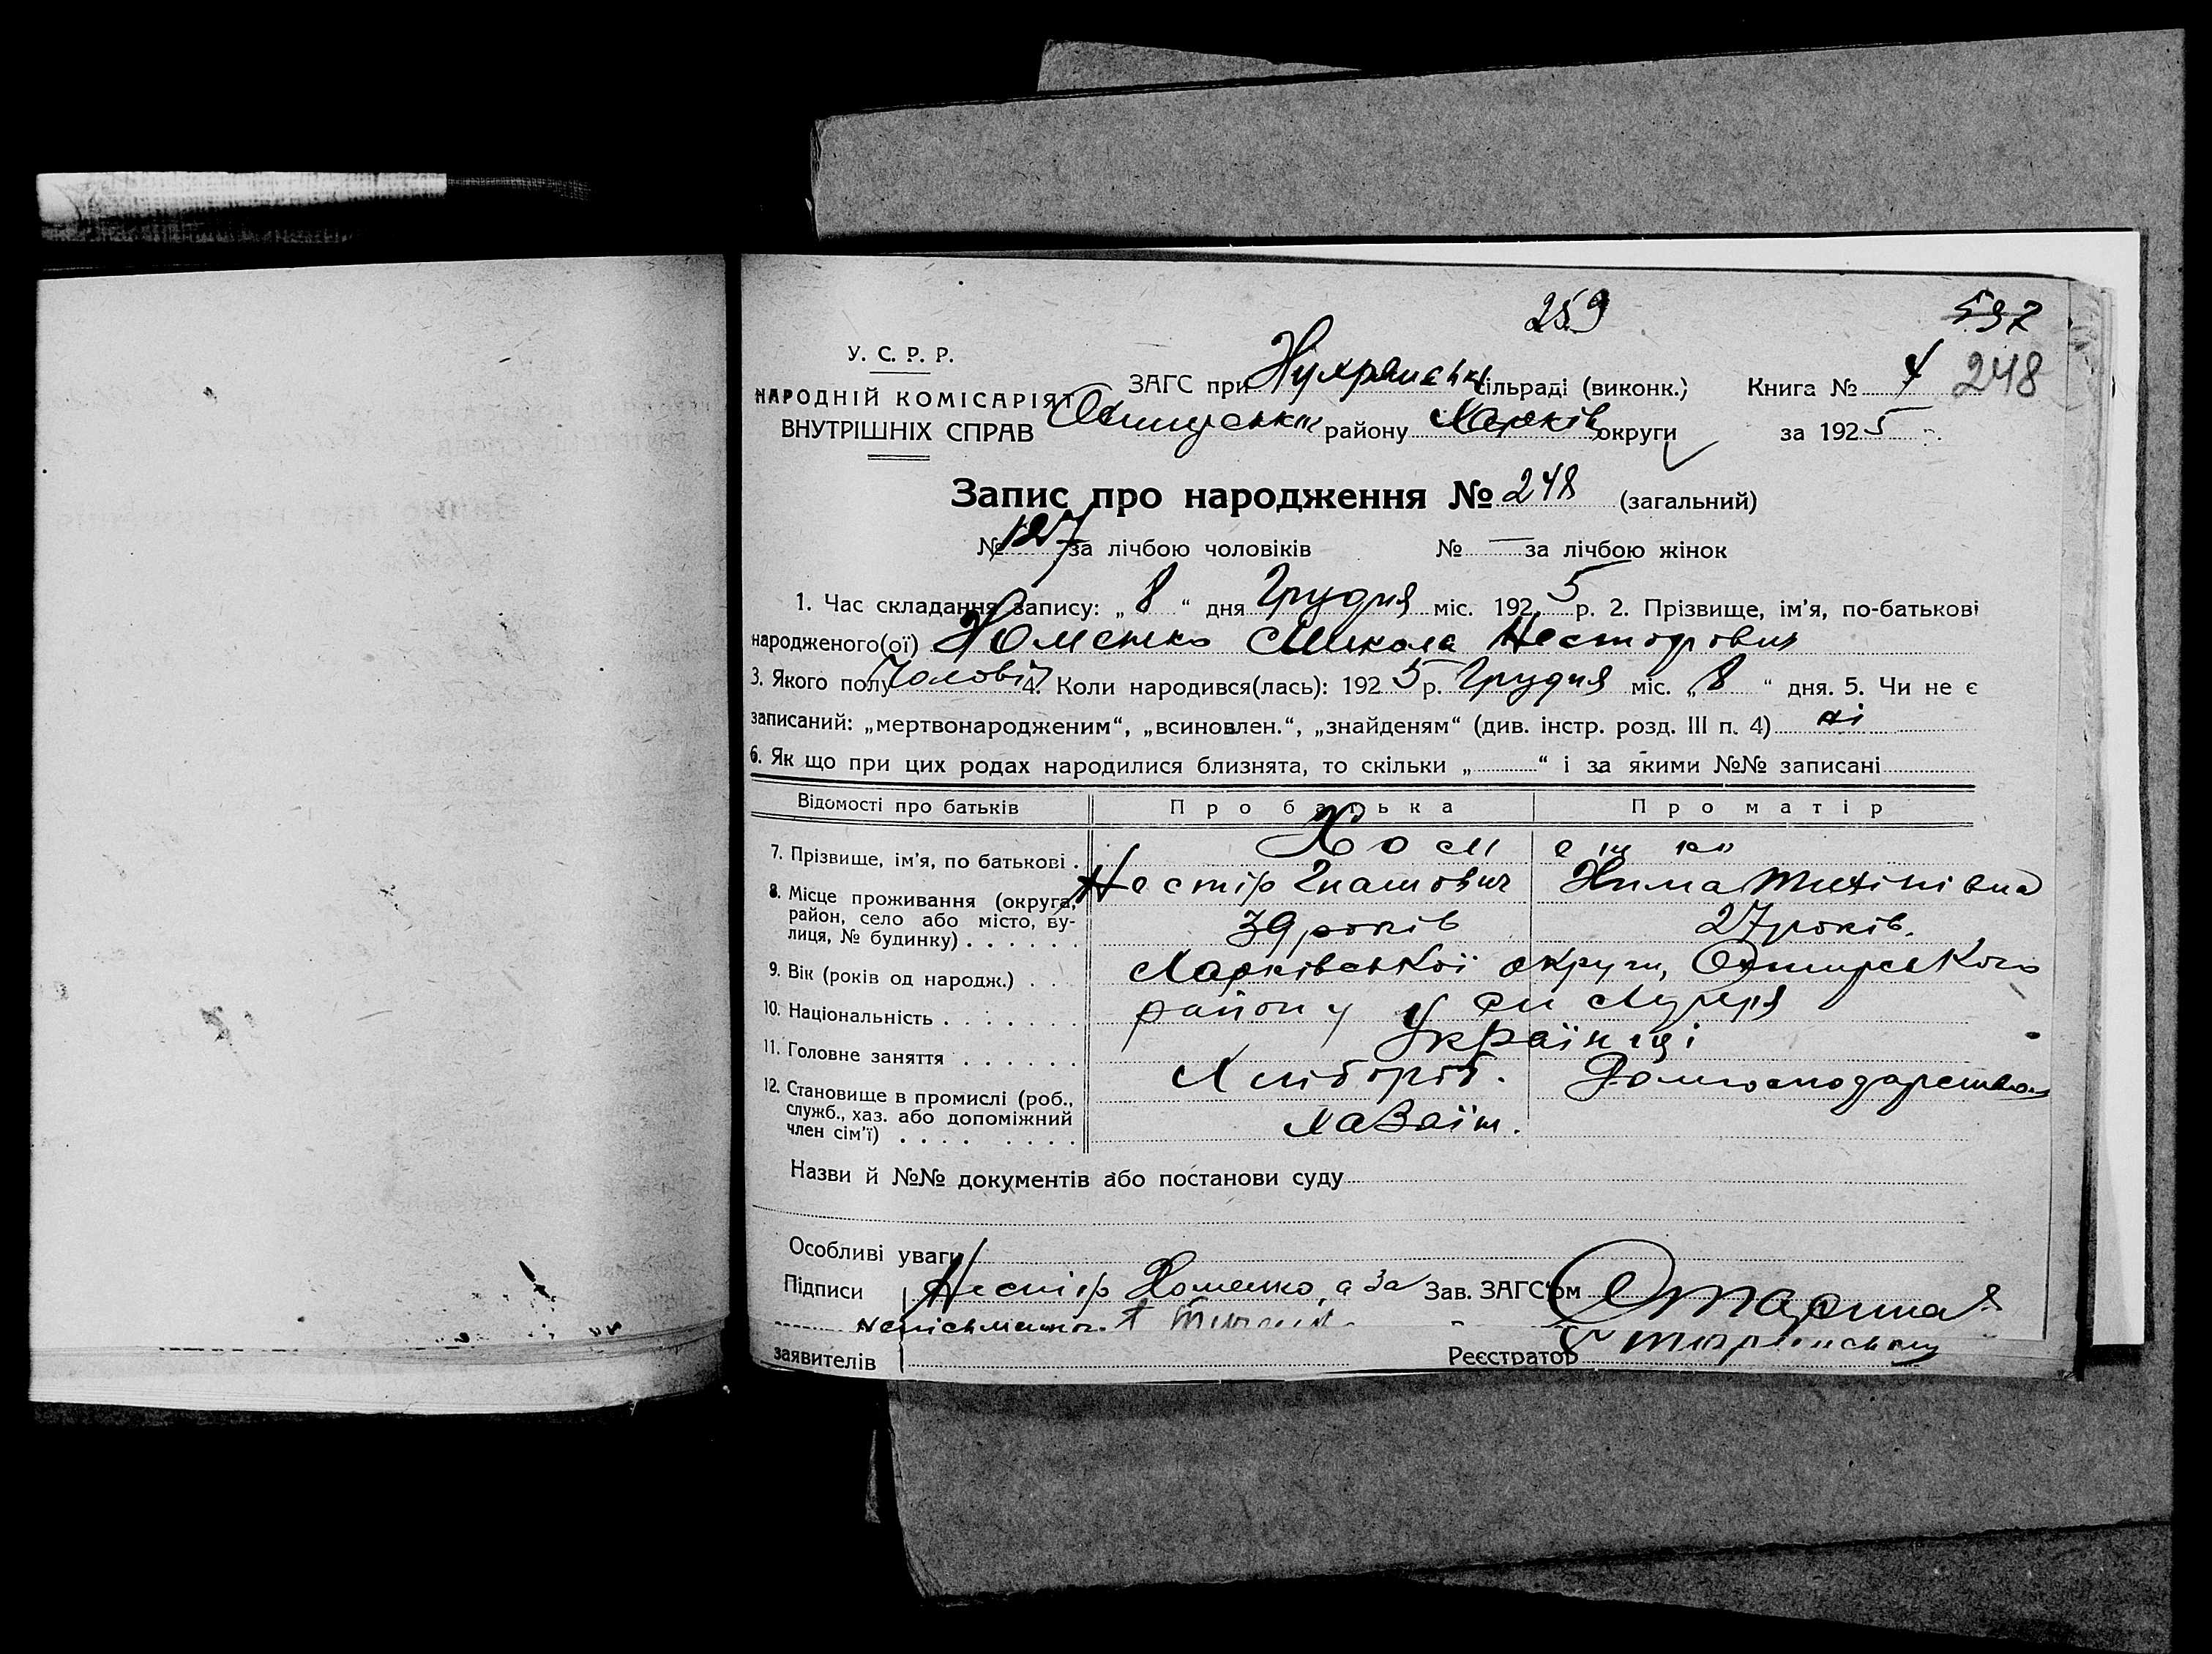 259
597
У. С. Р. Р.
НАРОДНІЙ КОМІСАРІЯТ
ВНУТРІШНІХ СПРАВ
ЗАГС при сільраді (виконк.)
району Харків округи
Книга № 4 248
за 1925 р.
Запис про народження № 248 (загальний)
№ 127 за лічбою чоловіків № — за лічбою жінок
1. Час складання запису: „ 8 “ дня Грудня міс. 1925 р. 2. Прізвище, ім’я, по-батькові
народженого(ої) Хоменко Микола Несторович
3. Якого полу Чоловіч 4. Коли народився(лась): 1925 р. Грудня міс. „ 8 “ дня. 5. Чи не є
записаний: „мертвонародженим“, „всиновлен.“, „знайденям“ (див. інстр. розд. III п. 4) ні
6. Як що при цих родах народилися близнята, то скільки „ “ і за якими №№ записані
Відомості про батьків Про батька Про матір
7. Прізвище, ім’я, по батькові . Хоменко
Нестір Гнатович
8. Місце проживання (округа,
район, село або місто, ву-
лиця, № будинку) . . . . . .
39 років 27 років.
9. Вік (років од народж.) . . . Харківської округи,
10. Національність . . . . . . . району
Українці
11. Головне заняття . . . . . . Хлібороб. Домгосподарством
12. Становище в промислі (роб.,
служб., хаз. або допоміжний
член сім’ї) . . . . . . . .
Хазаїн.
Назви й №№ документів або постанови суду
Особливі уваги
Підписи Нестір Хоменко, а за Зав. ЗАГС’ом
неписьменного
заявителів Реєстратор